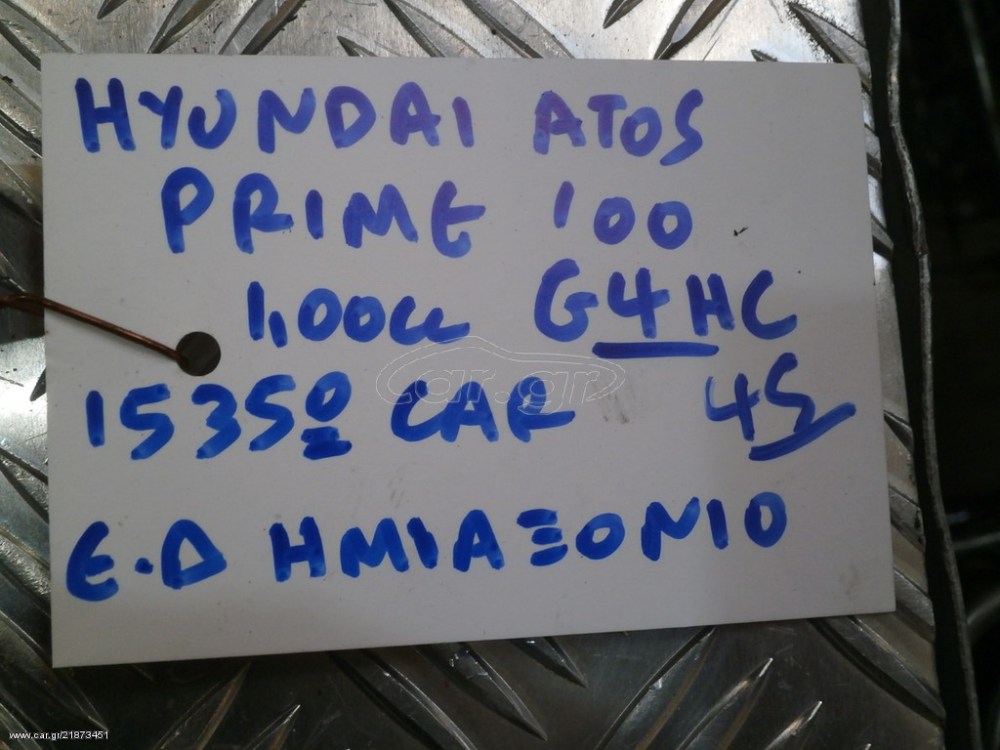 HYUNDAI ATOS
PRIME 100
1,00cc G4HC
15350 CAR 45
Ε.Δ ΗΜΙΑΞΟΝΙΟ
car.gr
www.car.gr/21873451